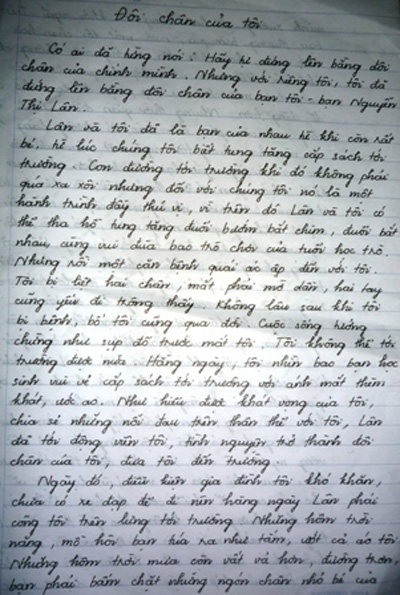 Đôi chân của tôi
Có ai đã từng nói: Hãy tự đứng lên bằng đôi
chân của chính mình. Nhưng với riêng tôi, tôi đã
đứng lên bằng đôi chân của bạn tôi - bạn Nguyễn
Thị Lân.
Lân và tôi đã là bạn của nhau từ khi còn rất
bé, từ lúc chúng tôi biết tung tăng cắp sách tới
trường. Con đường tới trường khi đó không phải
quá xa xôi nhưng đối với chúng tôi nó là một
hành trình đầy thú vị, vì trên đó Lân và tôi có
thể tha hồ tung tăng đuổi bướm bắt chim, đuổi bắt
nhau, cùng vui đùa bao trò chơi của tuổi học trò.
Nhưng rồi một căn bệnh quái ác ập đến với tôi.
Tôi bị liệt hai chân, mắt phải mờ dần, hai tay
cũng yếu đi trông thấy. Không lâu sau khi tôi
bị bệnh, bố tôi cũng qua đời. Cuộc sống tưởng
chừng như sụp đổ trước mắt tôi. Tôi không thể tới
trường được nữa. Hằng ngày, tôi nhìn bao bạn học
sinh vui vẻ cắp sách tới trường với ánh mắt thèm
khát, ước ao. Như hiểu được khát vọng của tôi,
chia sẻ những nỗi đau trên thân thể với tôi, Lân
đã tới động viên tôi, tình nguyện trở thành đôi
chân của tôi, đưa tôi đến trường.
Ngày đó, điều kiện gia đình tôi khó khăn,
chưa có xe đạp để đi nên hàng ngày Lân phải
cõng tôi trên lưng tới trường. Những hôm trời
nắng, mồ hôi bạn túa ra như tắm, ướt cả áo tôi.
Những hôm trời mưa còn vất vả hơn, đường trơn,
bạn phải bấm chặt những ngón chân nhỏ bé của